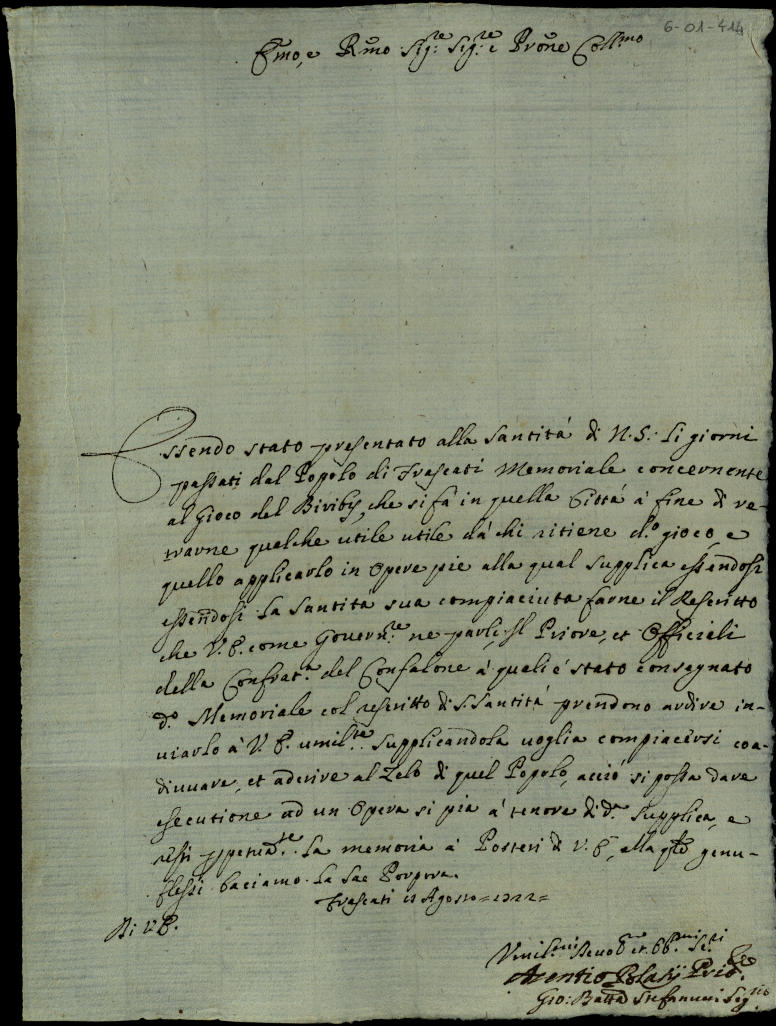 6-01-414
Emo, e Rmo Sig:re Sig:re e Prone Coll:mo
Essendo stato presentato alla Santità di N.S. li giorni
passati dal Popolo di Frascati Memoriale concernente
al Gioco del Biribis, che si fà in quella Città à fine di re=
trarne qualche utile utile dà chi ritiene d:o gioco, e
quello applicarlo in Opere pie alla qual supplica essendosi
essendosi la Santità sua compiaciuta farne il Rescritto
che V.E. come Govern:re ne parli, Il Priore, et Officiali
della Confrat:a del Confalone à quali è stato consegnato
d:o Memoriale col rescritto di S. Santità prendono ardire in=
viarlo à V.E. umil:te supplicandola voglia compiacersi coa=
diuuare, et aderire al Zelo di quel Popolo, acciò si possa dare
esecutione ad un Opera si pia à tenore di d:a supplica, e
resti ppetua:te la memoria à Posteri di V.E., alla qle genu=
flessi baciamo la Sac Porpora.
Frascati Agosto = 1722 =
Di V.E.
Vmil:mi Deuo:mi et Obb:mi Se:ri
Polasij Prio:re
Gio: Batta Stefanucci Seg:rio